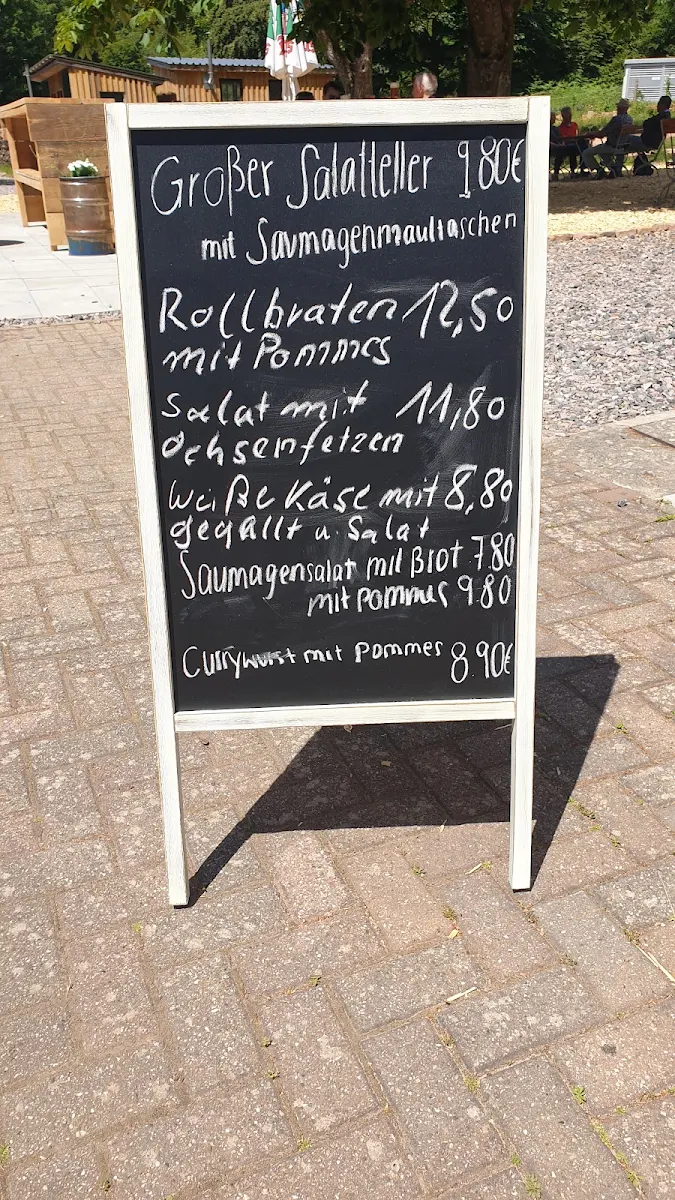 Großer Salatteller 9.80€
mit Saumagenmaultaschen
Rollbraten 12,50
mit Pommes
Salat mit 11,80
Ochsenfetzen
weiße Käse mit 8,80
gequllt u. Salat
Saumagensalat mit Brot 7.80
mit pommes 9.80
Currywurst mit pommes 8.90€